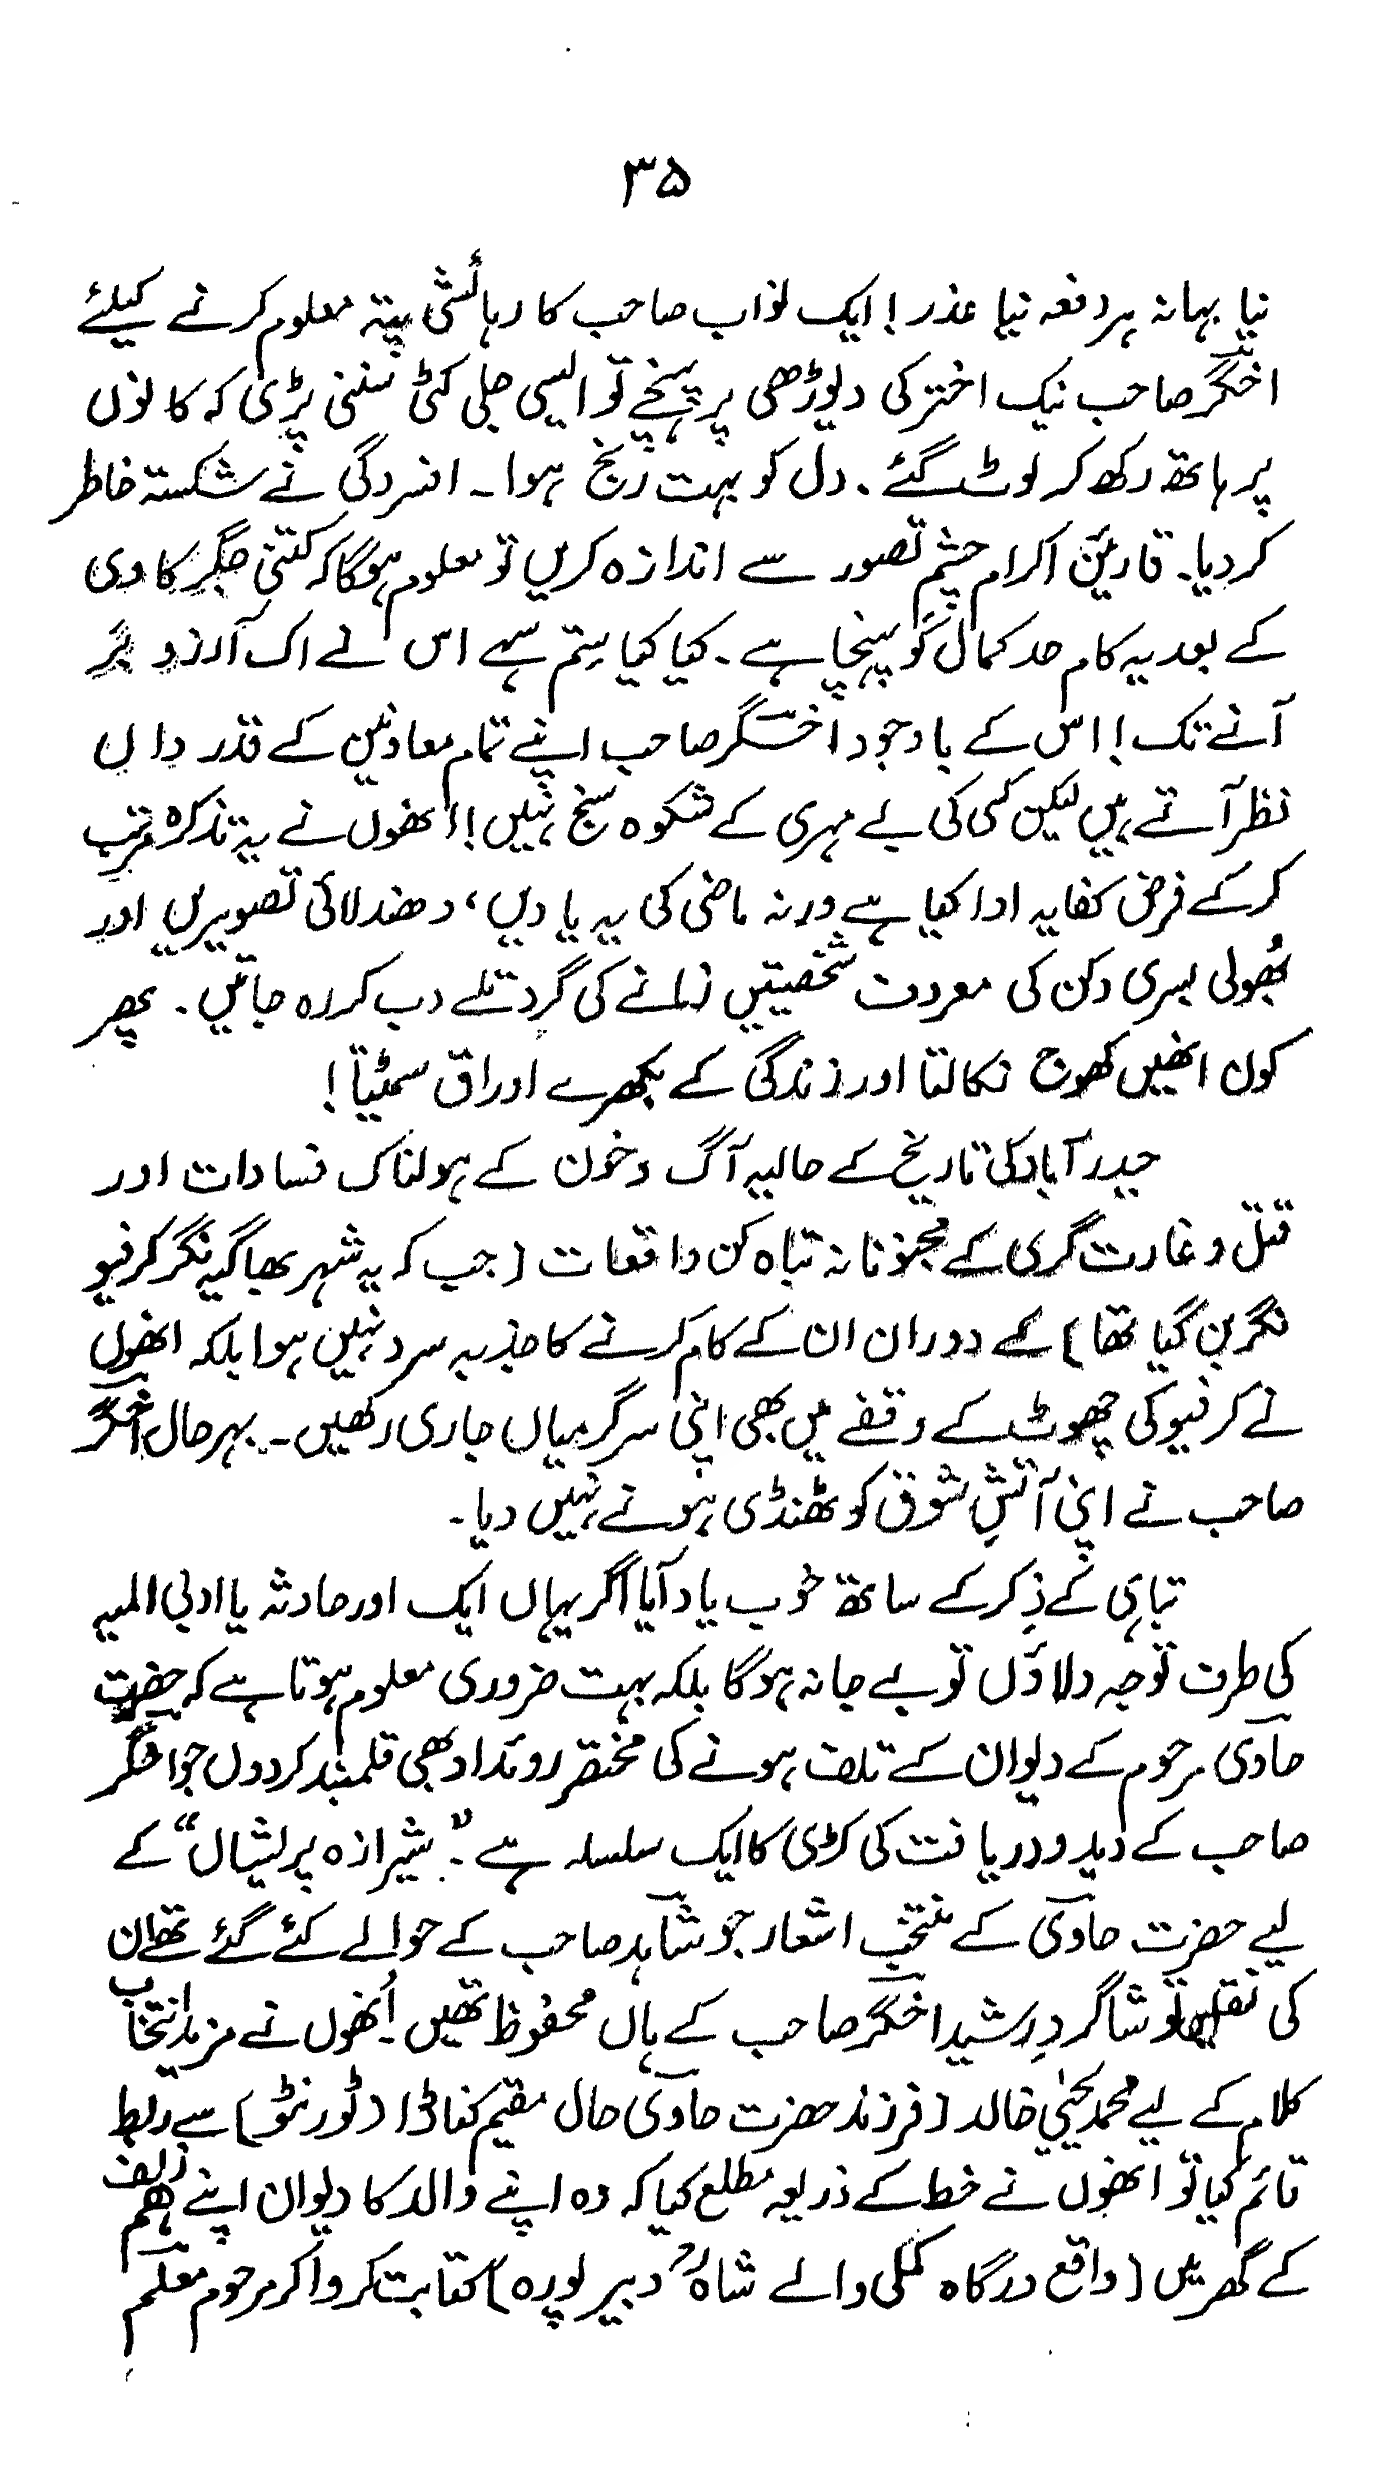 ۳۵
نیا بہانہ ہر دفعہ نیا عذر! ایک نواب صاحب کا رہائشی پتہ معلوم کرنے کیلئے
اخگر صاحب نیک اختر کی دیوڑھی پر پہنچے تو ایسی جلی کٹی سننی پڑی کہ کانوں
پر ہاتھ رکھ کر لوٹ گئے۔ دل کو بہت رنج ہوا۔ افسردگی نے شکستہ خاطر
کر دیا۔ قارئین اکرام چشم تصور سے اندازہ کریں تو معلوم ہوگا کہ کتنی جگر کاوی
کے بعد یہ کام حد کمال کو پہنچا ہے۔ کیا کیا ستم سہے اس نے اک آرزو بر
آنے تک! اس کے باوجود اخگر صاحب اپنے تمام معاونین کے قدر داں
نظر آتے ہیں لیکن کسی کی بے مہری کے شکوہ سنج نہیں! انھوں نے یہ تذکرہ مرتب
کر کے فرض کفایہ ادا کیا ہے ورنہ ماضی کی یہ یادیں، دھندلائی تصویریں اور
بھُولی بسری دکن کی معروف شخصیتیں زمانے کی گرد تلے دب کر رہ جاتیں۔ پھر
کون انھیں کھوج نکالتا اور زندگی کے بکھرے اوراق سمٹیتا!
حیدرآباد کی تاریخ کے حالیہ آگ و خون کے ہولناک فسادات اور
قتل و غارت گری کے مجنونانہ تباہ کن واقعات (جب کہ یہ شہر بھاگیہ نگر کرفیو
نگر بن گیا تھا) کے دوران ان کے کام کرنے کا جذبہ سرد نہیں ہوا بلکہ انھوں
نے کرفیو کی چھوٹ کے وقفے میں بھی اپنی سرگرمیاں جاری رکھیں۔ بہرحال اخگر
صاحب نے اپنی آتشِ شوق کو ٹھنڈی ہونے نہیں دیا۔
تباہی کے ذِکر کے ساتھ خوب یاد آیا اگر یہاں ایک اور حادثہ یا ادبی المیہ
کی طرف توجہ دلاؤں تو بے جا نہ ہوگا بلکہ بہت ضروری معلوم ہوتا ہے کہ حضرت
حاوی مرحوم کے دیوان کے تلف ہونے کی مختصر روئداد بھی قلمبند کردوں جو اخگر
صاحب کے دید و دریافت کی کڑی کا ایک سلسلہ ہے۔ "شیرازہ پریشاں" کے
لیے حضرت حاوی کے منتخب اشعار جو شاہد صاحب کے حوالے کئے گئے تھے ان
کی نقلیں تو شاگردِ رشید اخگر صاحب کے ہاں محفوظ تھیں۔ اُنھوں نے مزید انتخاب
کلام کے لیے محمد یحییٰ خالد (فرزند حضرت حاوی حال مقیم کناڈا (ٹورنٹو) سے ربط
قائم کیا تو انھوں نے خط کے ذریعہ مطلع کیا کہ وہ اپنے والد کا دیوان اپنے ہم زلف
کے گھر میں (واقع درگاہ کملی والے شاہؒ دبیر پورہ) کتابت کروا کر مرحوم معلم